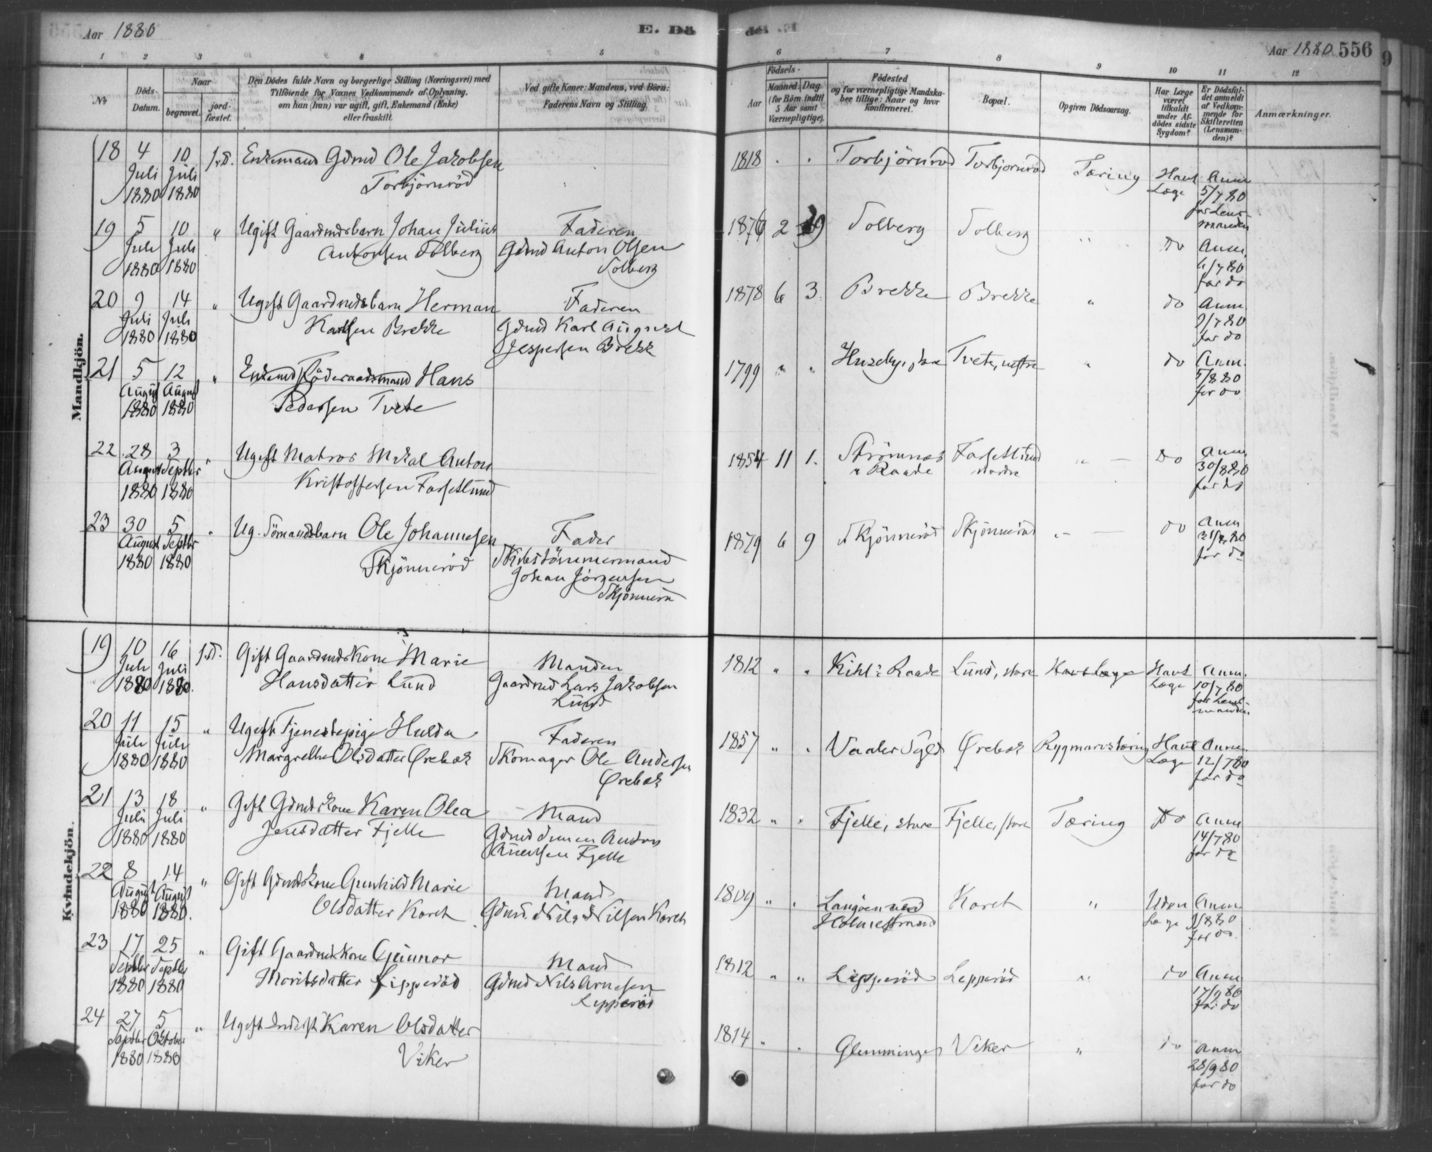 Aar 1880
E. Dö
Aar 1880. 556
1 2 3 4 5
6 7 8 9 10 11 12
No
Döds-
Datum.
Naar
begravet.
jord-
fæstet.
Den Dödes fulde Navn og borgerlige Stilling (Næringsvei) med
Tilföiende for Voxnes Vedkommende af Oplysning,
om han (hun) var ugift, gift, Enkemand (Enke)
eller fraskilt.
Ved gifte Koner: Mandens, ved Börn:
Faderens Navn og Stilling.
Födsels-
Aar
Maaned. Dag
(for Börn indtil
5 Aar samt
Værnepligtige).
Födested
og for værnepligtige Mandska-
ber tillige: Naar og hvor
konfirmeret.
Bopæl.
Opgiven Dödsaarsag.
Har Læge
været
tilkaldt
under Af-
dödes sidste
Sygdom?
Er Dödsfal-
det anmeldt
af Vedkom-
mende for
Skifteretten
(Lensman-
den)?
Anmærkninger.
Mandkjön.
18 4 Juli 1880 10 Juli 1880 Enkemand Gdmd Ole Jakobsen
Torbjörnröd
1818 " " Torbjörnröd Torbjörnröd Tæring Havt Læge Anm. 5/7 80 for Lens-
manden
19 5 Juli 1880 10 Juli 1880 " Ugift Gaardmdsbarn Johan Julius
Antonsen Solberg
Faderen
Gdmd Anton Olsen
Solberg
1876 2 Solberg Solberg " do Anm. 6/7 80 for do
20 9 Juli 1880 14 Juli 1880 " Ugift Gaardmdsbarn Herman
Karlsen Brekke
Faderen
Gdmd Karl August
Jespersen Brekke
1878 6 3 Brekke Brekke " do Anm. 9/7 80 for do
21 5 August 1880 12 August 1880 " Enkemd Föderaadsmand Hans
Pedersen Tvete
1799 " " Tvete, do Anm. 5/8 80 for do
22 28 August 1880 3 Septbr 1880 " Ugift Matros Mikal Anton
Kristoffersen
1854 11 1. Strömnes
Raade
nordre
" do Anm 30/8 80 for do
23 30 August 1880 5 Septbr 1880 " Ug. Sömandsbarn Ole Johannesen
Skjönneröd
Fader
Skibstömmermand
Johan Jörgensen
Skjönneröd
1879 6 9 Skjönneröd Skjönneröd " do Anm 31/8 80 for do
Kvindekjön.
19 10 Juli 1880 16 Juli 1880 Gift Gaardmdskone Marie
Hansdatter Lund
Manden
Gaardmd Lars Jakobsen
Lund
1812 " " Raade Lund, store Havt Læge Anm. 10/7 80 for Lens-
manden
20 11 Juli 1880 15 Juli 1880 " Ugift Tjenestepige Hulda
Margrethe Olsdatter Örebæk
Faderen
Skomager Ole Andersen
Örebæk
1857 " " Vaaler Örebæk Rygmarvstæring Havt Læge Anm. 12/7 80 for do
21 13 Juli 1880 18 Juli 1880 " Gift Gdmdskone Karen Olea
Jensdatter Fjelle
Mand
Gdmd Anton
Fjelle
1832 " " Fjelle, store Fjelle, store Tæring do Anm 14/7 80 for do
22 8 August 1880 14 August 1880 " Gift Gdmdskone Gunhild Marie
Olsdatter Karet
Mand
Gdmd Nils Nilsen Karet
1809 " " Langöen ved
Holmestrand
Karet " Uden Læge Anm 9/8 80 for do
23 17 Septbr 1880 25 Septbr 1880 " Gift Gaardmdskone Gunnor
Moritsdatter Lipperöd
Mand
Gdmd Nils Arnesen
Lipperöd
1812 " " Lipperöd Lepperöd " do Anm. 17/9 80 for do
24 27 Septbr 1880 5 Oktober 1880 " Ugift Inderst Karen Olsdatter
Viker
1814 " " Glemminge Viker " do Anm 28/9 80 for do